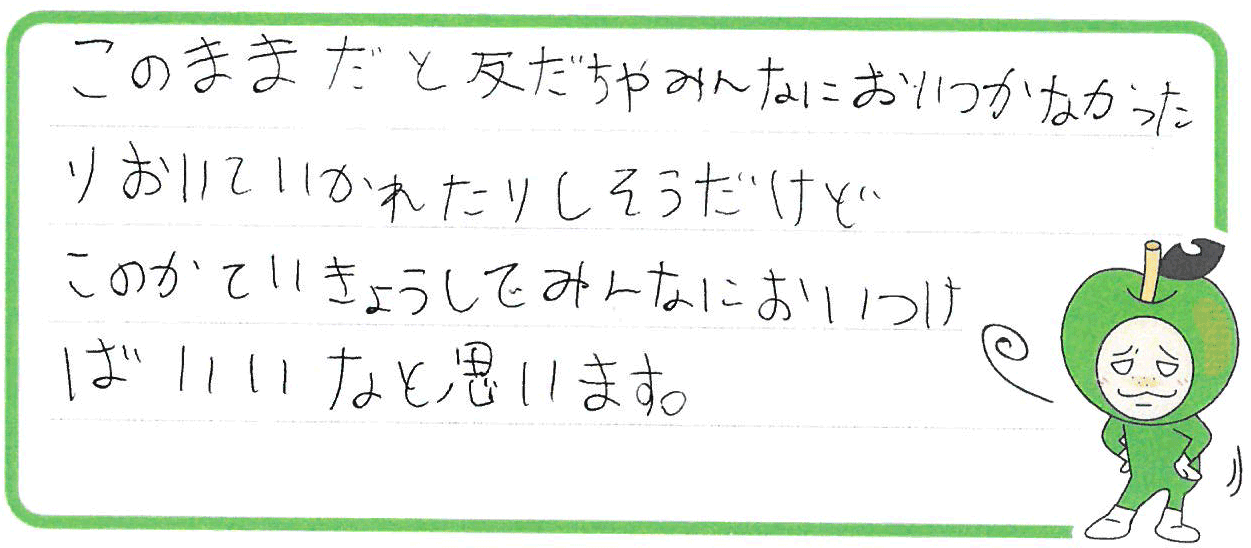 このままだと友だちやみんなにおいつかなかった
りおいていかれたりしそうだけど
このかていきょうしでみんなにおいつけ
ばいいなと思います。